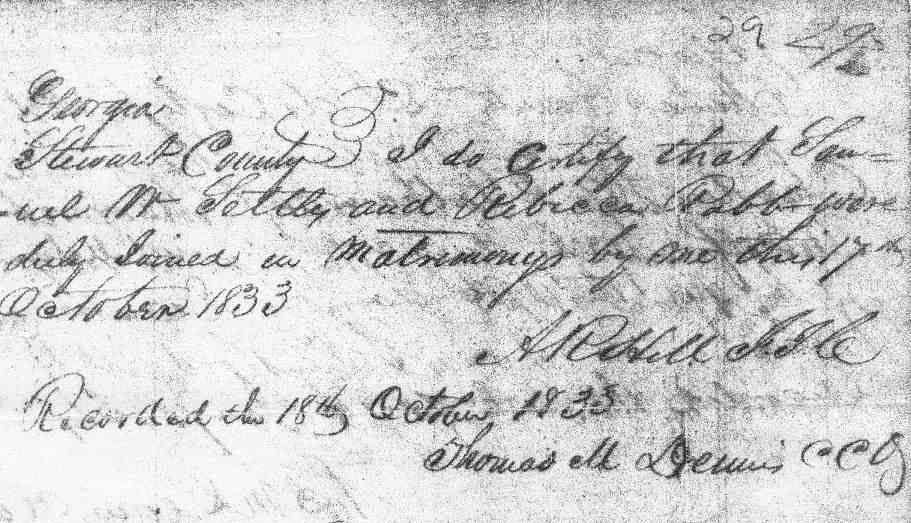 29 29
Georgia
Stewart County } I do certify that Sam=
-uel W Settly and Rebicca Rabb were
duly Joined in Matrimony by me this 17th
October 1833
Hill J.I.C
Recorded the 18th October 1833
Thomas M Dennis CCO